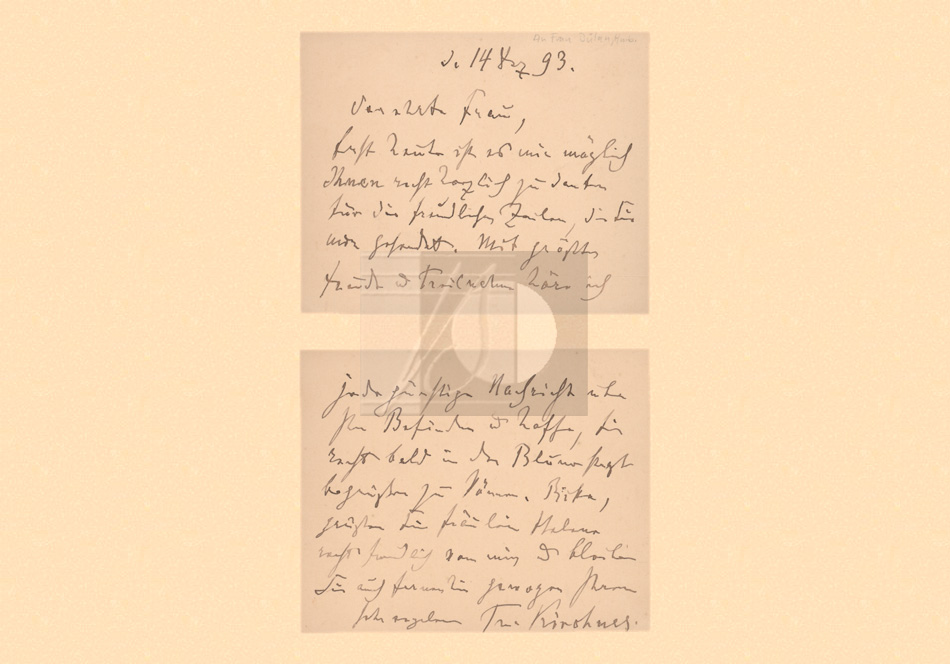 An Frau
d. 14 Dez 93.
Verehrte Frau,
Erst heute ist es mir möglich
Ihnen recht herzlich zu danken
für die freundlichen Zeilen, die Sie
mir gesendet. Mit größter
Freude u Theilnahme höre ich
jede günstige Nachricht über
Ihr Befinden u hoffe, Sie
recht bald in der
begrüßen zu können. Bitte,
grüßen Sie Fräulein Helene
recht freundlich von mir u bleiben
Sie auch fernerhin gewogen Ihrem
sehr ergebenen Kirchner.